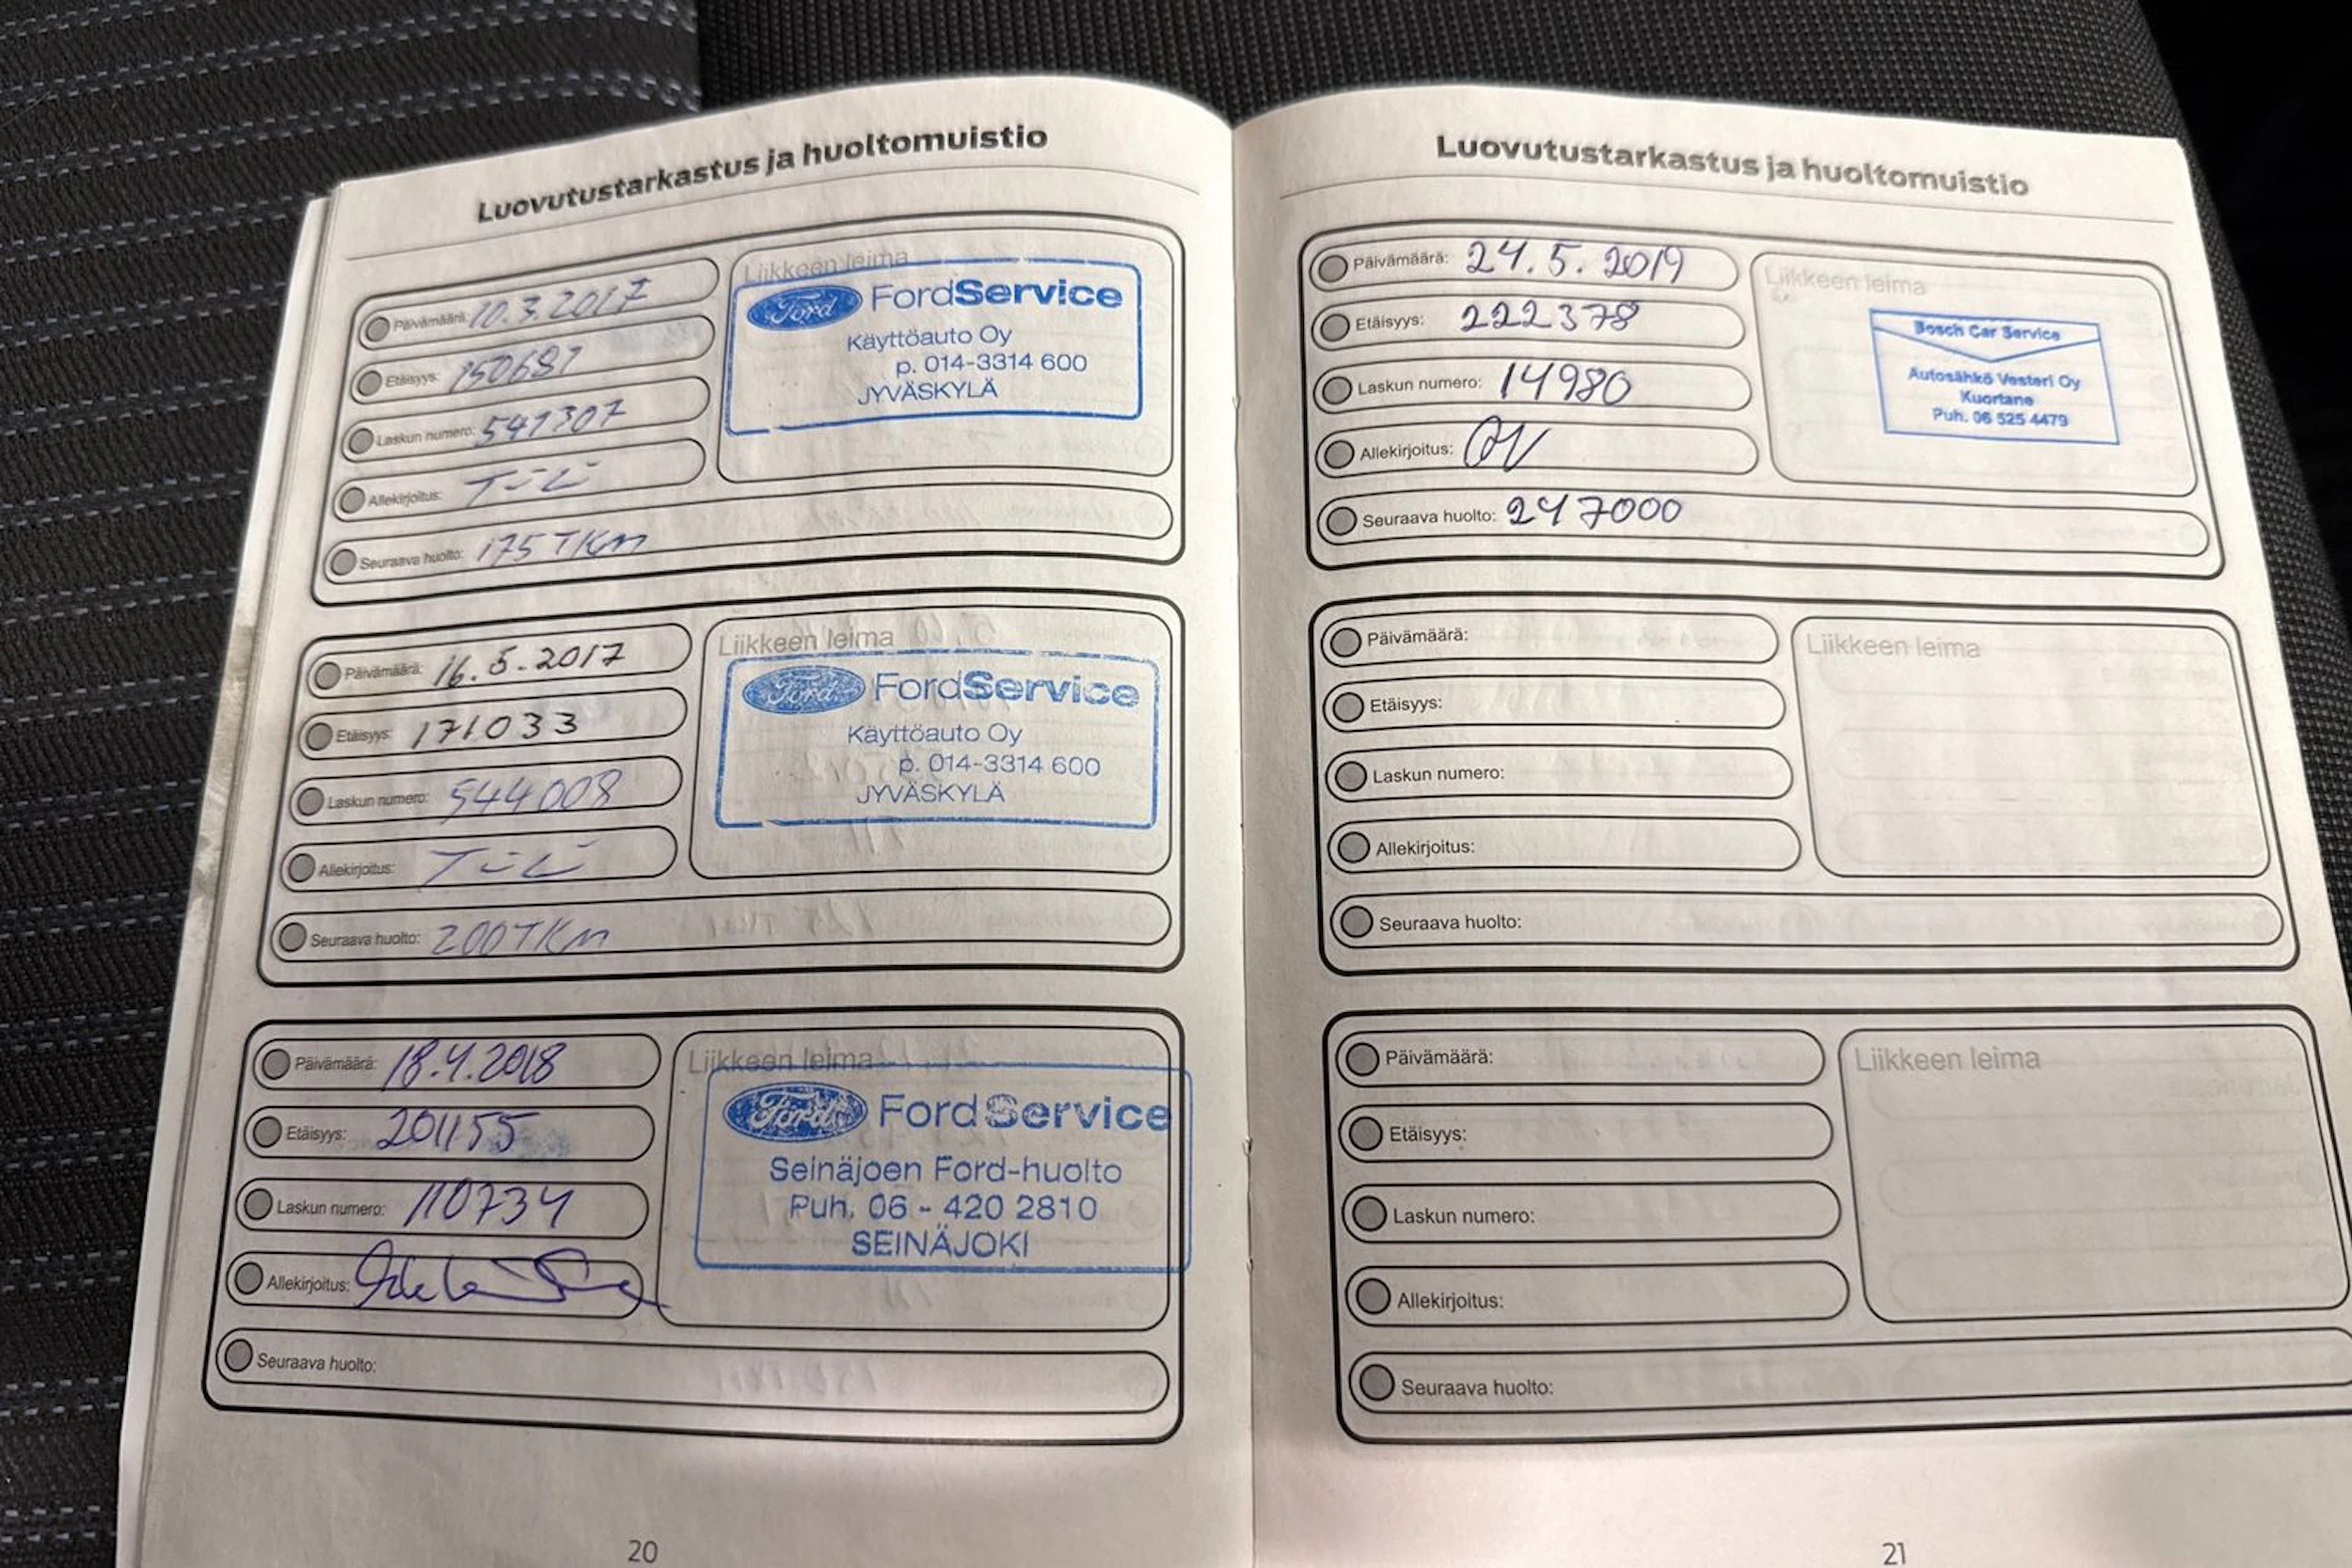 Luovutustarkastus ja huoltomuistio
Päivämäärä: 10.3.2017
Etäisyys: 150687
Laskun numero: 541307
Allekirjoitus:
Seuraava huolto: 175 TKM
Liikkeen leima
Ford FordService
Käyttöauto Oy
p. 014-3314 600
JYVÄSKYLÄ
Päivämäärä: 16.5.2017
Etäisyys: 171033
Laskun numero: 544008
Allekirjoitus:
Seuraava huolto: 200TKM
Liikkeen leima
Ford FordService
Käyttöauto Oy
p. 014-3314 600
JYVÄSKYLÄ
Päivämäärä: 18.4.2018
Etäisyys: 201155
Laskun numero: 110734
Allekirjoitus:
Seuraava huolto:
Liikkeen leima
Ford FordService
Seinäjoen Ford-huolto
Puh. 06 - 420 2810
SEINÄJOKI
20
Luovutustarkastus ja huoltomuistio
Päivämäärä: 24.5.2019
Etäisyys: 222378
Laskun numero: 14980
Allekirjoitus:
Seuraava huolto: 247000
Liikkeen leima
Bosch Car Service
Autosähkö Vesteri Oy
Kuortane
Puh. 06 525 4479
Päivämäärä:
Etäisyys:
Laskun numero:
Allekirjoitus:
Seuraava huolto:
Liikkeen leima
Päivämäärä:
Etäisyys:
Laskun numero:
Allekirjoitus:
Seuraava huolto:
Liikkeen leima
21